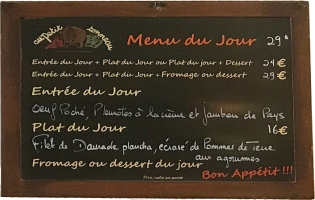 au petit tonneau
Menu du Jour 29€
Entrée du Jour + Plat du Jour ou Plat du jour + Dessert 24€
Entrée du Jour + Plat du Jour + Fromage ou dessert 29€
Entrée du Jour
Oeuf Poché, Pleurotes à la crème et jambon de Pays
Plat du Jour 16€
Filet de Daurade plancha, écrasé de Pommes de Terre
aux agrumes
Fromage ou dessert du jour
Bon Appétit !!!
Prix nets en euros